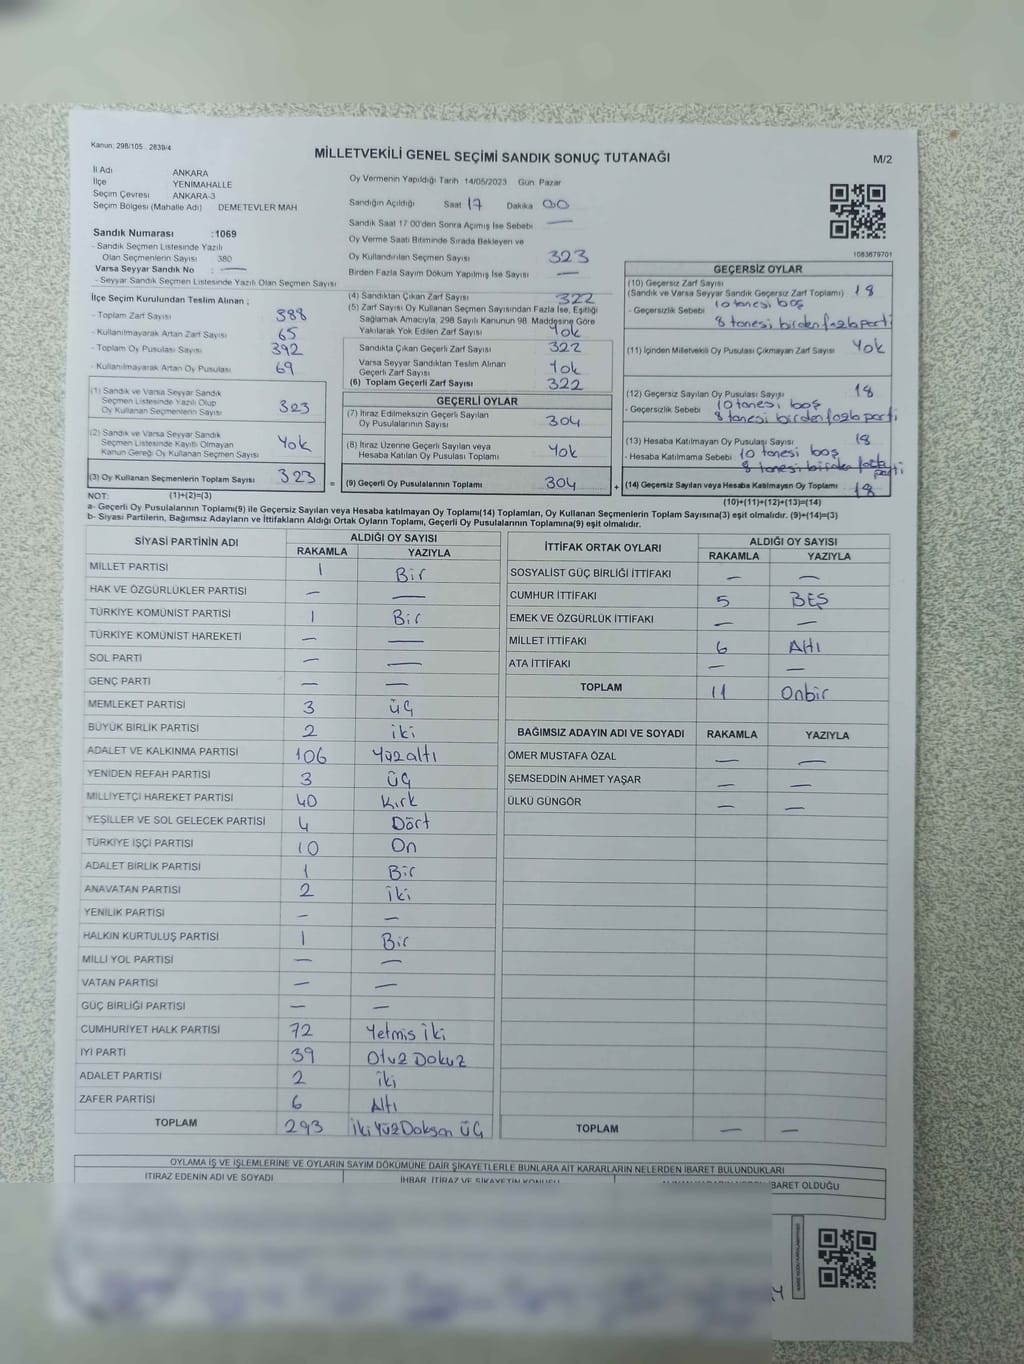 Kanun: 298/105 , 2839/4
MİLLETVEKİLİ GENEL SEÇİMİ SANDIK SONUÇ TUTANAĞI
M/2
İl Adı ANKARA
İlçe YENİMAHALLE
Seçim Çevresi ANKARA-3
Seçim Bölgesi (Mahalle Adı) DEMETEVLER MAH
Sandık Numarası :1069
- Sandık Seçmen Listesinde Yazılı
Olan Seçmenlerin Sayısı 380
Varsa Seyyar Sandık No : —
- Seyyar Sandık Seçmen Listesinde Yazılı Olan Seçmen Sayısı
Oy Vermenin Yapıldığı Tarih 14/05/2023 Gün: Pazar
Sandığın Açıldığı Saat 17 Dakika 00
Sandık Saat 17:00'den Sonra Açılmış İse Sebebi —
Oy Verme Saati Bitiminde Sırada Bekleyen ve
Oy Kullandırılan Seçmen Sayısı 323
Birden Fazla Sayım Döküm Yapılmış İse Sayısı —
1083679701
İlçe Seçim Kurulundan Teslim Alınan ;
- Toplam Zarf Sayısı 388
- Kullanılmayarak Artan Zarf Sayısı 65
- Toplam Oy Pusulası Sayısı 392
- Kullanılmayarak Artan Oy Pusulası 69
(1) Sandık ve Varsa Seyyar Sandık
Seçmen Listesinde Yazılı Olup
Oy Kullanan Seçmenlerin Sayısı 323
(2) Sandık ve Varsa Seyyar Sandık
Seçmen Listesinde Kayıtlı Olmayan
Kanun Gereği Oy Kullanan Seçmen Sayısı Yok
(3) Oy Kullanan Seçmenlerin Toplam Sayısı 323 =
(4) Sandıktan Çıkan Zarf Sayısı 322
(5) Zarf Sayısı Oy Kullanan Seçmen Sayısından Fazla İse, Eşitliği
Sağlamak Amacıyla, 298 Sayılı Kanunun 98. Maddesine Göre
Yakılarak Yok Edilen Zarf Sayısı Yok
Sandıkta Çıkan Geçerli Zarf Sayısı 322
Varsa Seyyar Sandıktan Teslim Alınan
Geçerli Zarf Sayısı Yok
(6) Toplam Geçerli Zarf Sayısı 322
GEÇERLİ OYLAR
(7) İtiraz Edilmeksizin Geçerli Sayılan
Oy Pusulalarının Sayısı 304
(8) İtiraz Üzerine Geçerli Sayılan veya
Hesaba Katılan Oy Pusulası Toplamı Yok
(9) Geçerli Oy Pusulalarının Toplamı 304 +
GEÇERSİZ OYLAR
(10) Geçersiz Zarf Sayısı
(Sandık ve Varsa Seyyar Sandık Geçersiz Zarf Toplamı) 18
- Geçersizlik Sebebi 10 tanesi boş
8 tanesi birden fazla parti
(11) İçinden Milletvekili Oy Pusulası Çıkmayan Zarf Sayısı Yok
(12) Geçersiz Sayılan Oy Pusulası Sayısı 18
- Geçersizlik Sebebi 10 tanesi boş
8 tanesi birden fazla parti
(13) Hesaba Katılmayan Oy Pusulası Sayısı 18
- Hesaba Katılmama Sebebi 10 tanesi boş
8 tanesi fazla parti
(14) Geçersiz Sayılan veya Hesaba Katılmayan Oy Toplamı 18
NOT: (1)+(2)=(3)
(10)+(11)+(12)+(13)=(14)
a- Geçerli Oy Pusulalarının Toplamı(9) ile Geçersiz Sayılan veya Hesaba katılmayan Oy Toplamı(14) Toplamları, Oy Kullanan Seçmenlerin Toplam Sayısına(3) eşit olmalıdır. (9)+(14)=(3)
b- Siyasi Partilerin, Bağımsız Adayların ve İttifakların Aldığı Ortak Oyların Toplamı, Geçerli Oy Pusulalarının Toplamına(9) eşit olmalıdır.
SİYASİ PARTİNİN ADI ALDIĞI OY SAYISI
RAKAMLA YAZIYLA
MİLLET PARTİSİ 1 Bir
HAK VE ÖZGÜRLÜKLER PARTİSİ — —
TÜRKİYE KOMÜNİST PARTİSİ 1 Bir
TÜRKİYE KOMÜNİST HAREKETİ — —
SOL PARTİ — —
GENÇ PARTİ — —
MEMLEKET PARTİSİ 3 üç
BÜYÜK BİRLİK PARTİSİ 2 iki
ADALET VE KALKINMA PARTİSİ 106 Yüzaltı
YENİDEN REFAH PARTİSİ 3 üç
MİLLİYETÇİ HAREKET PARTİSİ 40 Kırk
YEŞİLLER VE SOL GELECEK PARTİSİ 4 Dört
TÜRKİYE İŞÇİ PARTİSİ 10 On
ADALET BİRLİK PARTİSİ 1 Bir
ANAVATAN PARTİSİ 2 iki
YENİLİK PARTİSİ — —
HALKIN KURTULUŞ PARTİSİ 1 Bir
MİLLİ YOL PARTİSİ — —
VATAN PARTİSİ — —
GÜÇ BİRLİĞİ PARTİSİ — —
CUMHURİYET HALK PARTİSİ 72 Yetmis iki
İYİ PARTİ 39 Otuz Dokuz
ADALET PARTİSİ 2 iki
ZAFER PARTİSİ 6 Altı
TOPLAM 293 İkiYüzDoksan ÜÇ
İTTİFAK ORTAK OYLARI ALDIĞI OY SAYISI
RAKAMLA YAZIYLA
SOSYALİST GÜÇ BİRLİĞİ İTTİFAKI — —
CUMHUR İTTİFAKI 5 BEŞ
EMEK VE ÖZGÜRLÜK İTTİFAKI — —
MİLLET İTTİFAKI 6 Altı
ATA İTTİFAKI — —
TOPLAM 11 Onbir
BAĞIMSIZ ADAYIN ADI VE SOYADI RAKAMLA YAZIYLA
ÖMER MUSTAFA ÖZAL — —
ŞEMSEDDİN AHMET YAŞAR — —
ÜLKÜ GÜNGÖR — —
TOPLAM — —
OYLAMA İŞ VE İŞLEMLERİNE VE OYLARIN SAYIM DÖKÜMÜNE DAİR ŞİKAYETLERLE BUNLARA AİT KARARLARIN NELERDEN İBARET BULUNDUKLARI
İTİRAZ EDENİN ADI VE SOYADI
İHBAR, İTİRAZ VE ŞİKAYETİN KONUSU
İBARET OLDUĞU